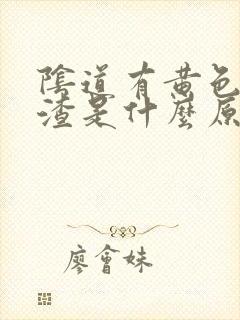 陰道有黃色
渣是什麼原
廖會妹